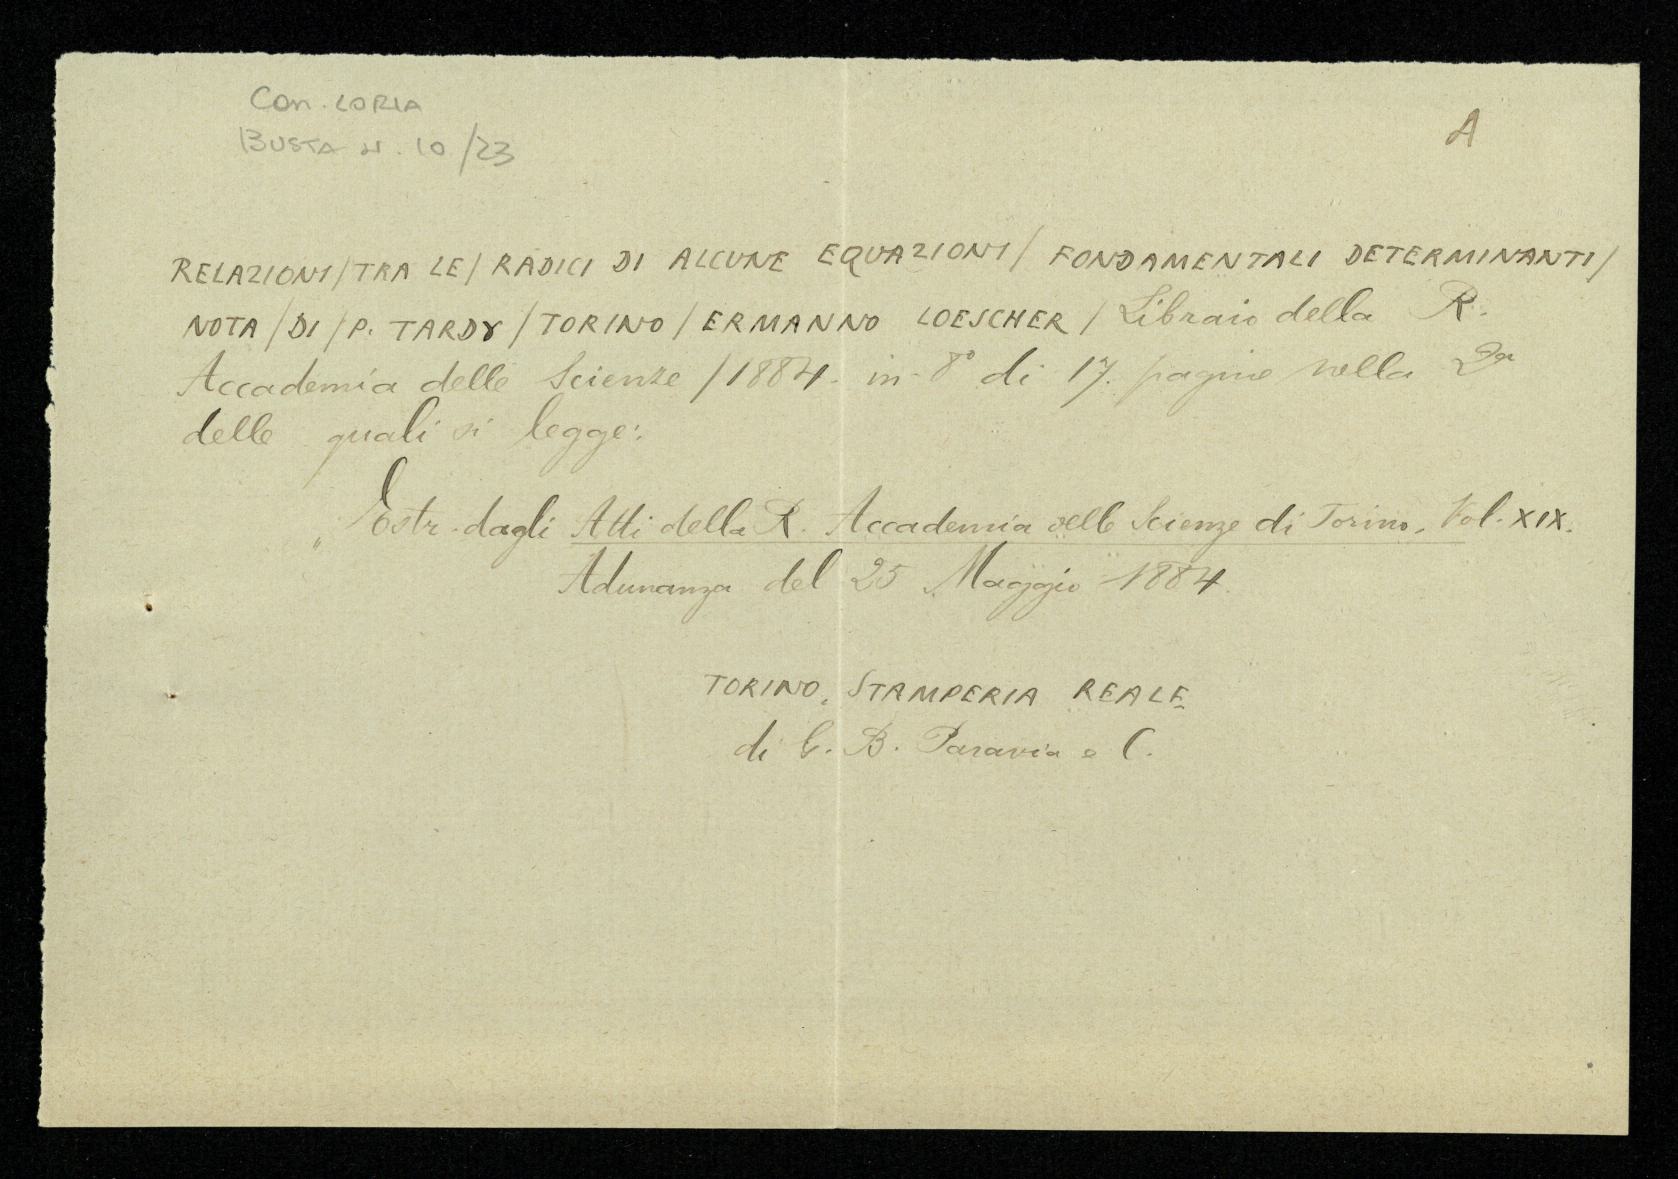 Con. LORIA
BUSTA N. 10/23
A
RELAZIONI/TRA LE/RADICI DI ALCUNE EQUAZIONI/ FONDAMENTALI DETERMINANTI/
NOTA/DI/P. TARDY/TORINO/ERMANNO LOESCHER/Libraio della R.
Accademia delle Scienze/1884. in-8° di 17. pagine nella 2a
delle quali si legge:
„ Estr. dagli Atti della R. Accademia delle Scienze di Torino, Vol. XIX.
Adunanza del 25 Maggio 1884.
TORINO, STAMPERIA REALE
di G. B. Paravia e C.